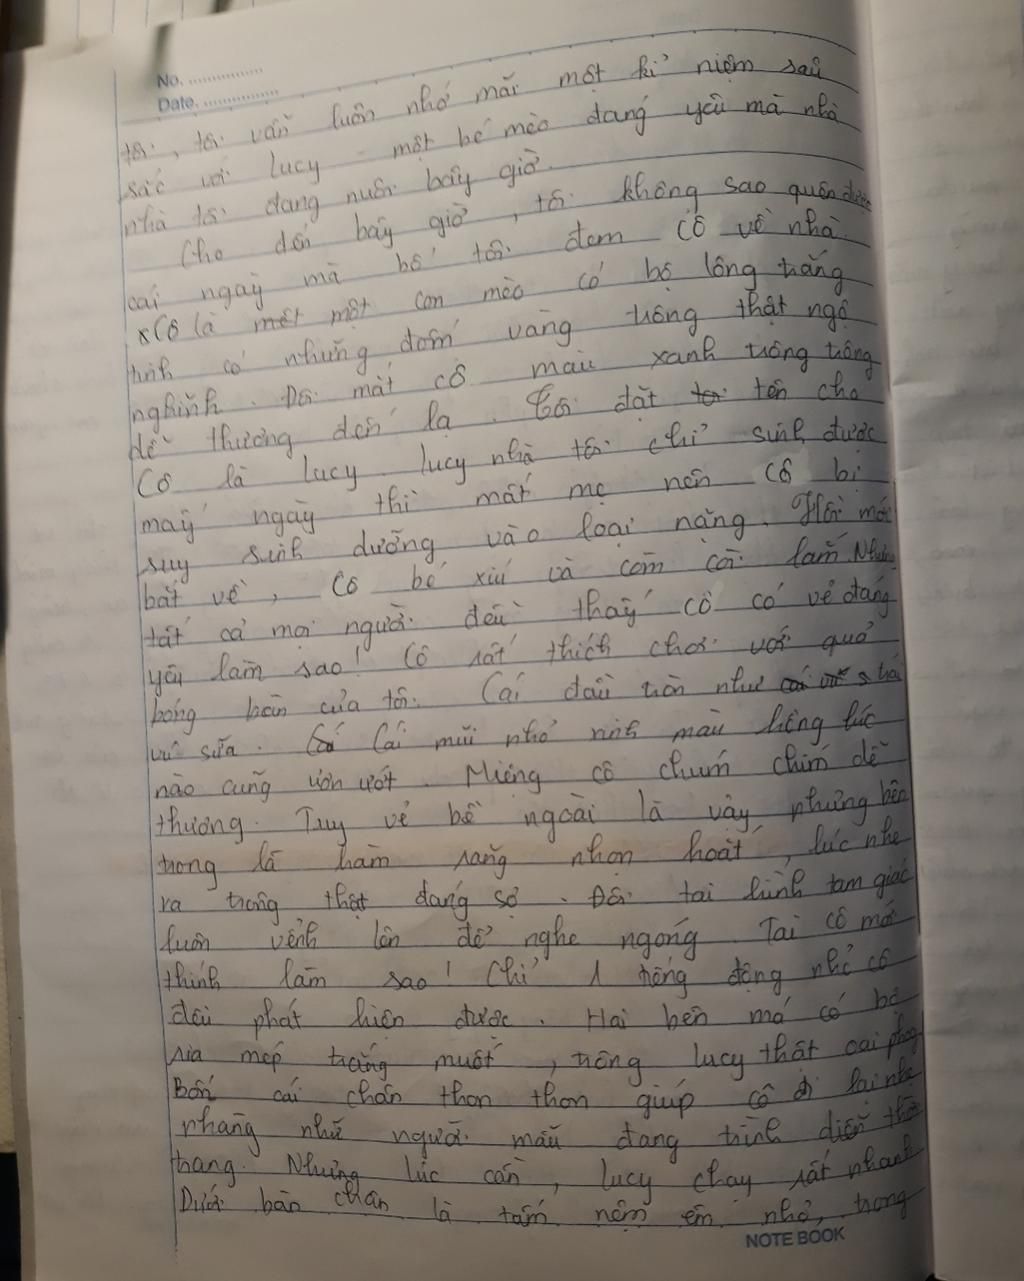 No. ................
Date. ................
tôi, tôi vẫn luôn nhớ mãi một kỉ niệm sâu
sắc với lucy - một bé mèo đáng yêu mà nhà
nhà tôi đang nuôi bây giờ.
Cho đến bây giờ, tôi không sao quên được
cái ngày mà bố tôi đem cô về nhà.
Cô là một con mèo có bộ lông trắng
tinh có những đốm vàng trông thật ngộ
nghĩnh. Đôi mắt cô màu xanh trông trông
dễ thương đến lạ. Tôi đặt tên cho
Cô là lucy. lucy nhà tôi chỉ sinh được
mấy ngày thì mất mẹ nên cô bị
suy sinh dưỡng vào loại nặng. Hồi mới
bắt về, Cô bé xíu và còm còi lắm. Nhưng
tất cả mọi người đều thấy cô có vẻ đáng
yêu làm sao! Cô rất thích chơi với quả
bóng bàn của tôi. Cái đầu tròn như trái
vú sữa. Cái mũi nhỏ xinh màu hồng lúc
nào cũng ươn ướt. Miệng cô chúm chím dễ
thương. Tuy vẻ bề ngoài là vậy nhưng bên
trong là hàm răng nhọn hoắt, lúc nhe
ra trông thật đáng sợ. Đôi tai hình tam giác
luôn vểnh lên để nghe ngóng. Tai cô mới
thính làm sao! Chỉ 1 tiếng động nhỏ cô
đều phát hiện được. Hai bên má có bộ
ria mép trắng muốt, trông lucy thật oai phong
Bốn cái chân thon thon giúp cô đi lại nhẹ
nhàng như người mẫu đang trình diễn thời
trang. Nhưng lúc cần, lucy chạy rất nhanh
Dưới bàn chân là tấm nệm êm nhỏ, trong
NOTE BOOK